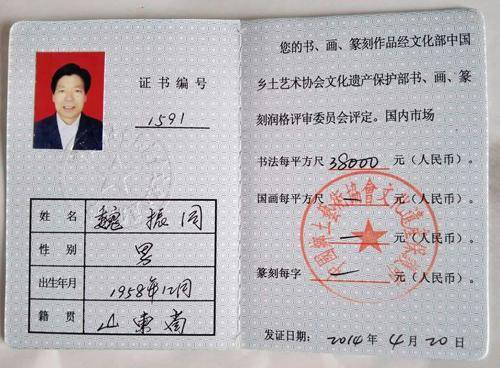 证书编号
1591
姓名 魏振同
性别 男
出生年月 1958年12月
籍贯 山东
您的书、画、篆刻作品经文化部中国
乡土艺术协会文化遗产保护部书、画、篆
刻润格评审委员会评定。国内市场
书法每平方尺 38000 元（人民币）。
国画每平方尺 一 元（人民币）。
篆刻每字 一 元（人民币）。
发证日期：2014年4月20日